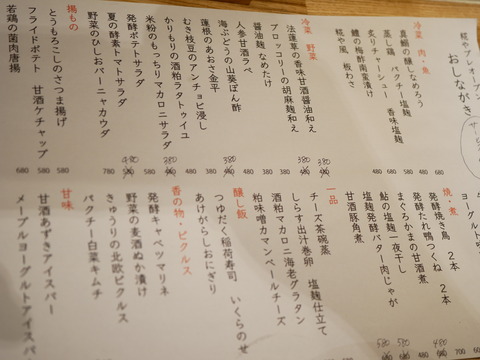 糀やプレオープン
おしながき
冷菜 肉・魚
真鯛の醸しなめろう
蒸し鶏 パクチー塩麹
炙りチャーシュー 香味塩麹
鱧の梅酢南蛮漬け
糀や風 板わさ
冷菜 野菜
法蓮草の香味甘酒醤油和え
ブロッコリーの胡麻麹和え
醤油麹 なめたけ
人参甘酒ラペ
海ぶどうの山葵ぽん酢
蓮根のあおさ金平
むき枝豆のアンチョビ浸し
かりもりの酒粕ラタトゥイユ
米粉のもっちりマカロニサラダ
発酵ポテトサラダ
夏の酵素トマトサラダ
野菜のひしおバーニャカウダ
780
揚もの
とうもろこしのさつま揚げ 580
フライドポテト 甘酒ケチャップ 580
若鶏の菌肉唐揚 680
焼・煮
発酵焼き鳥 2本
発酵たれ鴨つくね 2本
まぐろかまの甘酒煮
鮎の塩麹一夜干し
塩麹発酵バター肉じゃが
甘酒豚角煮
一品
チーズ茶碗蒸 塩麹仕立て
しらす出汁巻卵
酒粕マカロニ海老グラタン
粕味噌カマンベールチーズ
醸し飯
つゆだく稲荷寿司 いくらのせ
あけがらしおにぎり
香の物・ピクルス
発酵キャベツマリネ
野菜の麦酒ぬか漬け
きゅうりの北欧ピクルス
パクチー白菜キムチ
甘味
甘酒あずきアイスバー
メープルヨーグルトアイスバ